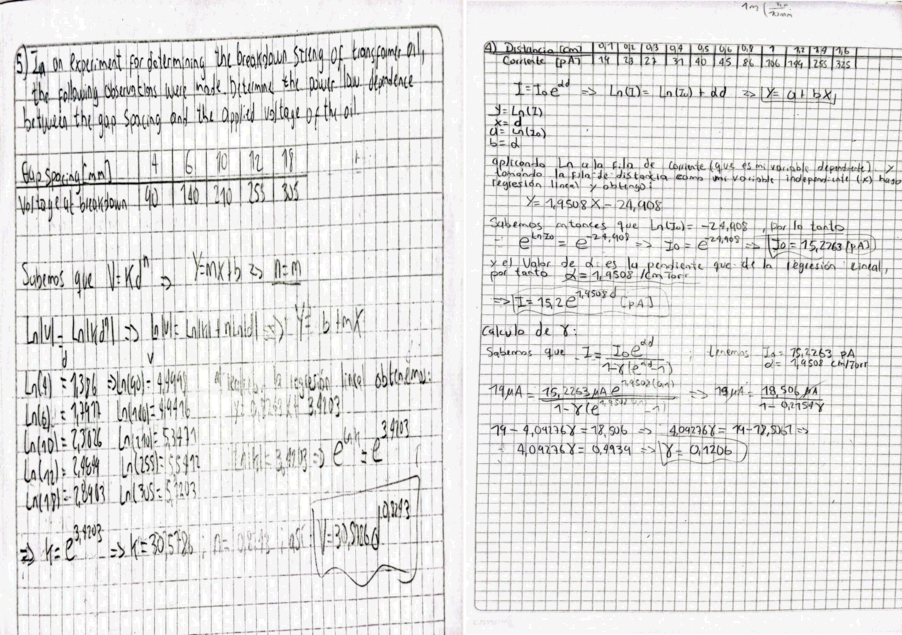 5) In an experiment for determining the breakdown streng of transformer oil,
the following observations were made. Determine the power law dependence
between the gap spacing and the applied voltage of the oil.
Gap spacing [mm] 4 6 10 12 18
Voltage at breakdown 90 140 210 255 305
Sabemos que V=Kdⁿ => Y=mx+b => n=m
Ln|V| = Ln|Kdⁿ| => ln|V| = Ln|K| + n ln|d| => Y= b+mX
d V
Ln(4) = 1,386 => Ln(90) = 4,4998
Ln(6) = 1,7917 Ln(140) = 4,9416
Ln(10) = 2,3026 Ln(210) = 5,3471
Ln(12) = 2,4849 Ln(255) = 5,5412
Ln(18) = 2,8903 Ln(305) = 5,7203
la regresión lineal obtenemos:
=> K = e^3,4203 => K = 30,5786 ; n = 0,8293 ; así V=30,5786 d^0,8293
4) Distancia [cm] 0,1 0,2 0,3 0,4 0,5 0,6 0,8 1 1,2 1,4 1,6
Corriente [pA] 19 23 27 31 40 45 86 106 144 255 325
I = I₀e^αd => Ln(I) = Ln(I₀) + αd => Y= a+bX
y = Ln(I)
x = d
a = Ln(I₀)
b = α
aplicando Ln a la fila de corriente (que es mi variable dependiente) y
tomando la fila de distancia como mi variable independiente (x) hago
regresión lineal y obtengo:
Y = 1,9508X - 24,908
Sabemos entonces que Ln(I₀) = -24,908 , por lo tanto
e^LnI₀ = e^-24,908 => I₀ = e^-24,908 => I₀ = 15,2263 [pA]
y el valor de α es la pendiente que de la regresión lineal,
por tanto α = 1,9508 /cm Torr
=> I = 15,2 e^1,9508 d [pA]
Calculo de γ:
Sabemos que I = I₀e^αd / 1-γ(e^αd-1) ; tenemos I₀ = 15,2263 pA
α = 1,9508 cm/Torr
19μA = 15,2263 μA e^1,9508(0,1) / 1-γ(e^1,9508(0,1)-1) => 19μA = 18,506 μA / 1-0,2154γ
19 - 4,09276γ = 18,506 => 4,09276γ = 19-18,5061 =>
4,09276γ = 0,4939 => γ = 0,1206